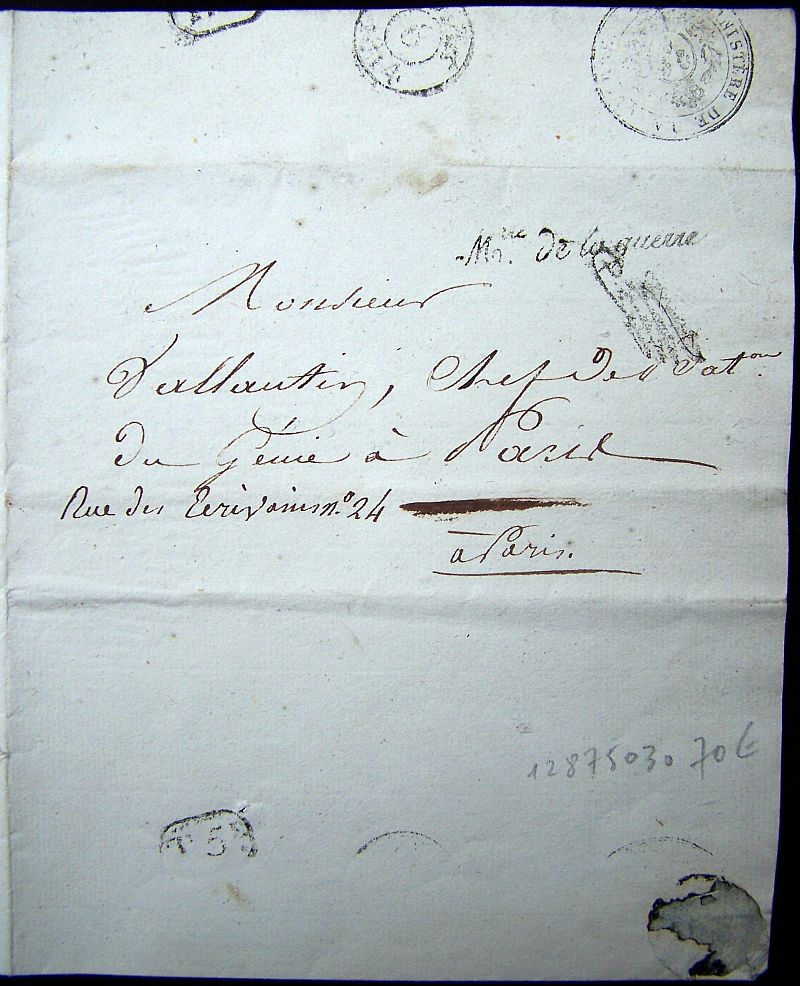 MINISTÈRE DE LA GUERRE
M.re de la guerre
Monsieur
Dallautin, Chef de Bat.on
du Génie à Paris
Rue des Ecrivains n.o 24
à Paris.
12875030 70€
5